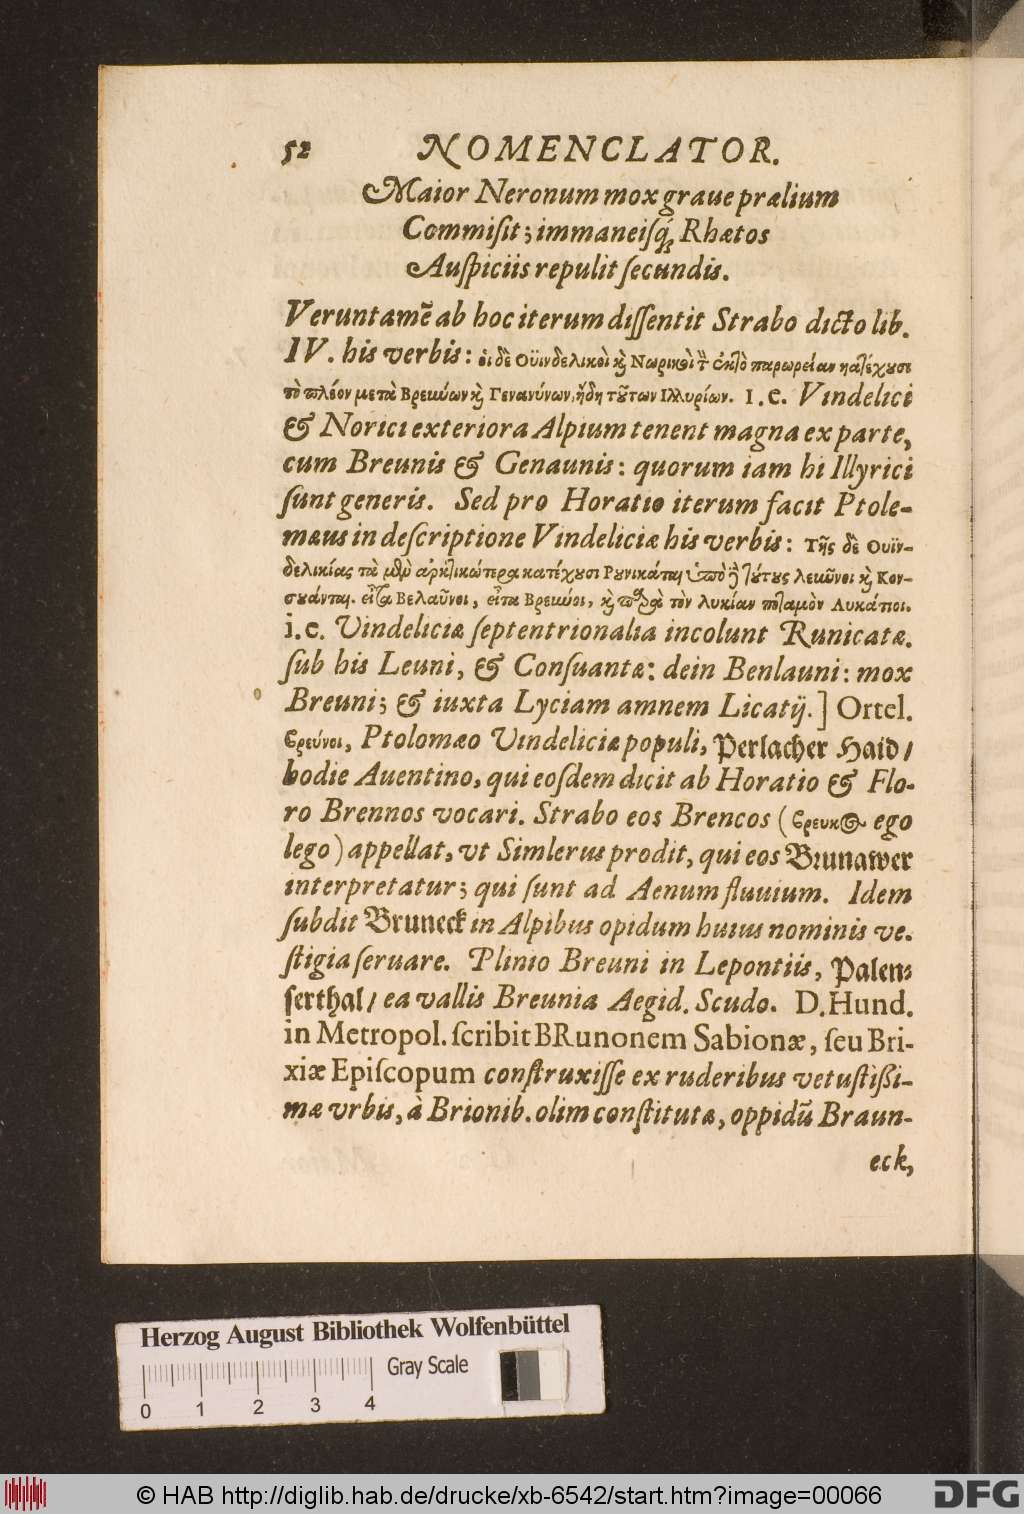 52 NOMENCLATOR.
Maior Neronum mox graue prælium
Commiſit; immaneiſq́; Rhætos
Auſpiciis repulit ſecundis.
Veruntamē ab hoc iterum diſſentit Strabo dicto lib.
IV. his verbis: οἱ δὲ Οὐϊνδελικοὶ κὶ Νωρικοὶ τ̀ ἐκτὸ παρωρείαν κατέχουσι
τὸ πλέον μετὰ Βρευύων κὶ Γεναυύνων, ἤδη τούτων Ιλλυρίων. i.e. Vindelici
& Norici exteriora Alpium tenent magna ex parte,
cum Breunis & Genaunis: quorum iam hi Illyrici
ſunt generis. Sed pro Horatio iterum facit Ptole-
mæus in deſcriptione Vindeliciæ his verbis: Τῆς δὲ Οὐϊν-
δελικίας τὰ μὲν ἀρκτικώτερα κατέχουσι Ρουνικάται ὑπὸ ἢ τούτους λευῶνοι κὶ Κον-
σουάνται. εἶτα Βελαῦνοι, εἶτα Βρεῦοι, κὶ παρὰ τὸν λυκίαν ποταμὸν Λυκάτιοι.
i.e. Vindeliciæ ſeptentrionalia incolunt Runicatæ.
ſub his Leuni, & Conſuantæ: dein Benlauni: mox
Breuni; & iuxta Lyciam amnem Licatij.] Ortel.
Βρεύνοι, Ptolomæo Vindeliciæ populi, Perlacher Haid/
hodie Auentino, qui eoſdem dicit ab Horatio & Flo-
ro Brennos vocari. Strabo eos Brencos (βρευκος ego
lego) appellat, vt Simlerus prodit, qui eos Brunawer
interpretatur; qui ſunt ad Aenum fluuium. Idem
ſubdit Bruneck in Alpibus opidum huius nominis ve-
ſtigia ſeruare. Plinio Breuni in Lepontiis, Palen-
ſerthal/ ea vallis Breunia Aegid. Scudo. D. Hund.
in Metropol. ſcribit BRunonem Sabionæ, ſeu Bri-
xiæ Epiſcopum conſtruxiſſe ex ruderibus vetuſtißi-
mæ vrbis, à Brionib. olim conſtitutæ, oppidū Braun-
eck,
Herzog August Bibliothek Wolfenbüttel
Gray Scale
0 1 2 3 4
© HAB http://diglib.hab.de/drucke/xb-6542/start.htm?image=00066
DFG